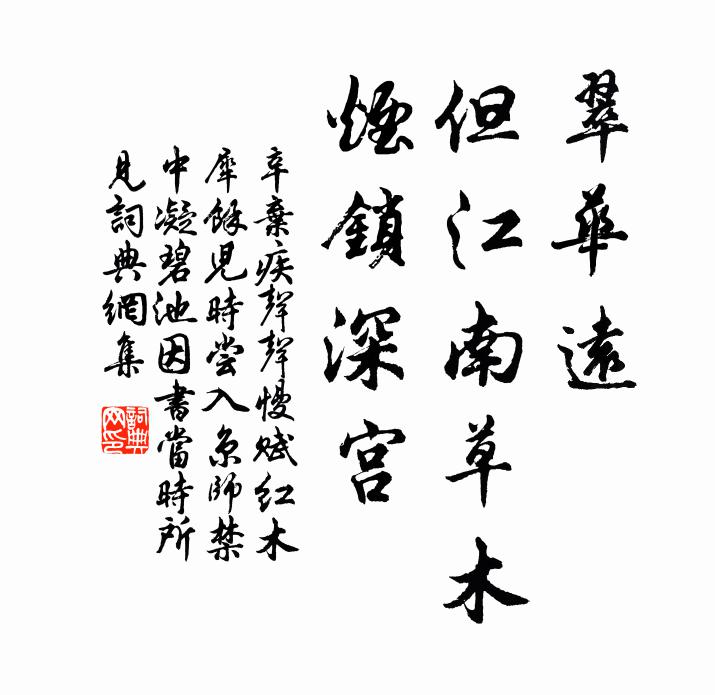 翠華遠
但江南草木
煙鎖深宫
辛棄疾聲聲慢賦紅木
犀餘兒時嘗入京師禁
中凝碧池因書當時所
見詞典網集
詞典
网印